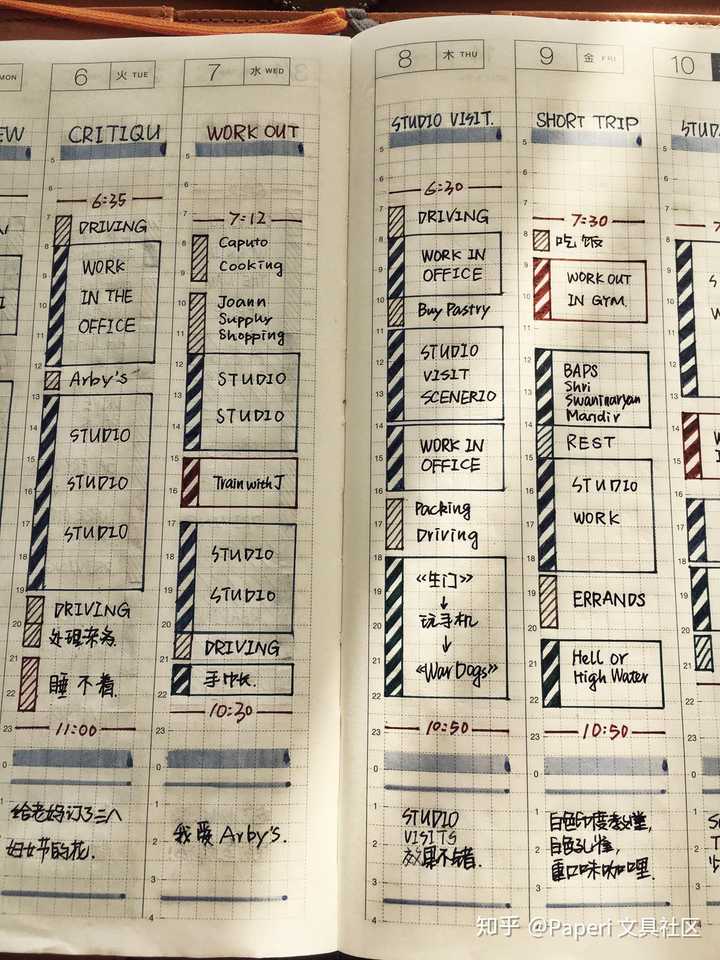 MON
EW
6 火 TUE
CRITIQU
6:35
DRIVING
WORK
IN THE
OFFICE
Arby's
STUDIO
STUDIO
STUDIO
DRIVING
处理来宾
睡不着.
11:00
给老妈订了三八
妇女节的花.
7 水 WED
WORK OUT
7:12
Caputo
Cooking
Joann
Supply
Shopping
STUDIO
STUDIO
Train with J
STUDIO
STUDIO
DRIVING
10:30
我爱 Arby's.
8 木 THU
STUDIO VISIT.
6:30
DRIVING
WORK IN
OFFICE
Buy Pastry
STUDIO
VISIT
SCENERIO
WORK IN
OFFICE
Packing
Driving
《生门》
↓
玩手机
↓
《War Dogs》
10:50
STUDIO
VISITS
效果不错.
9 金 FRI
SHORT TRIP
7:30
吃饭
WORK OUT
IN GYM.
BAPS
Shri
Swaminaryan
Mandir
REST
STUDIO
WORK
ERRANDS
Hell or
High Water
10:50
白色印度教堂,
白色孔雀,
重口味咖喱.
10
知乎 @Paperi 文具社区